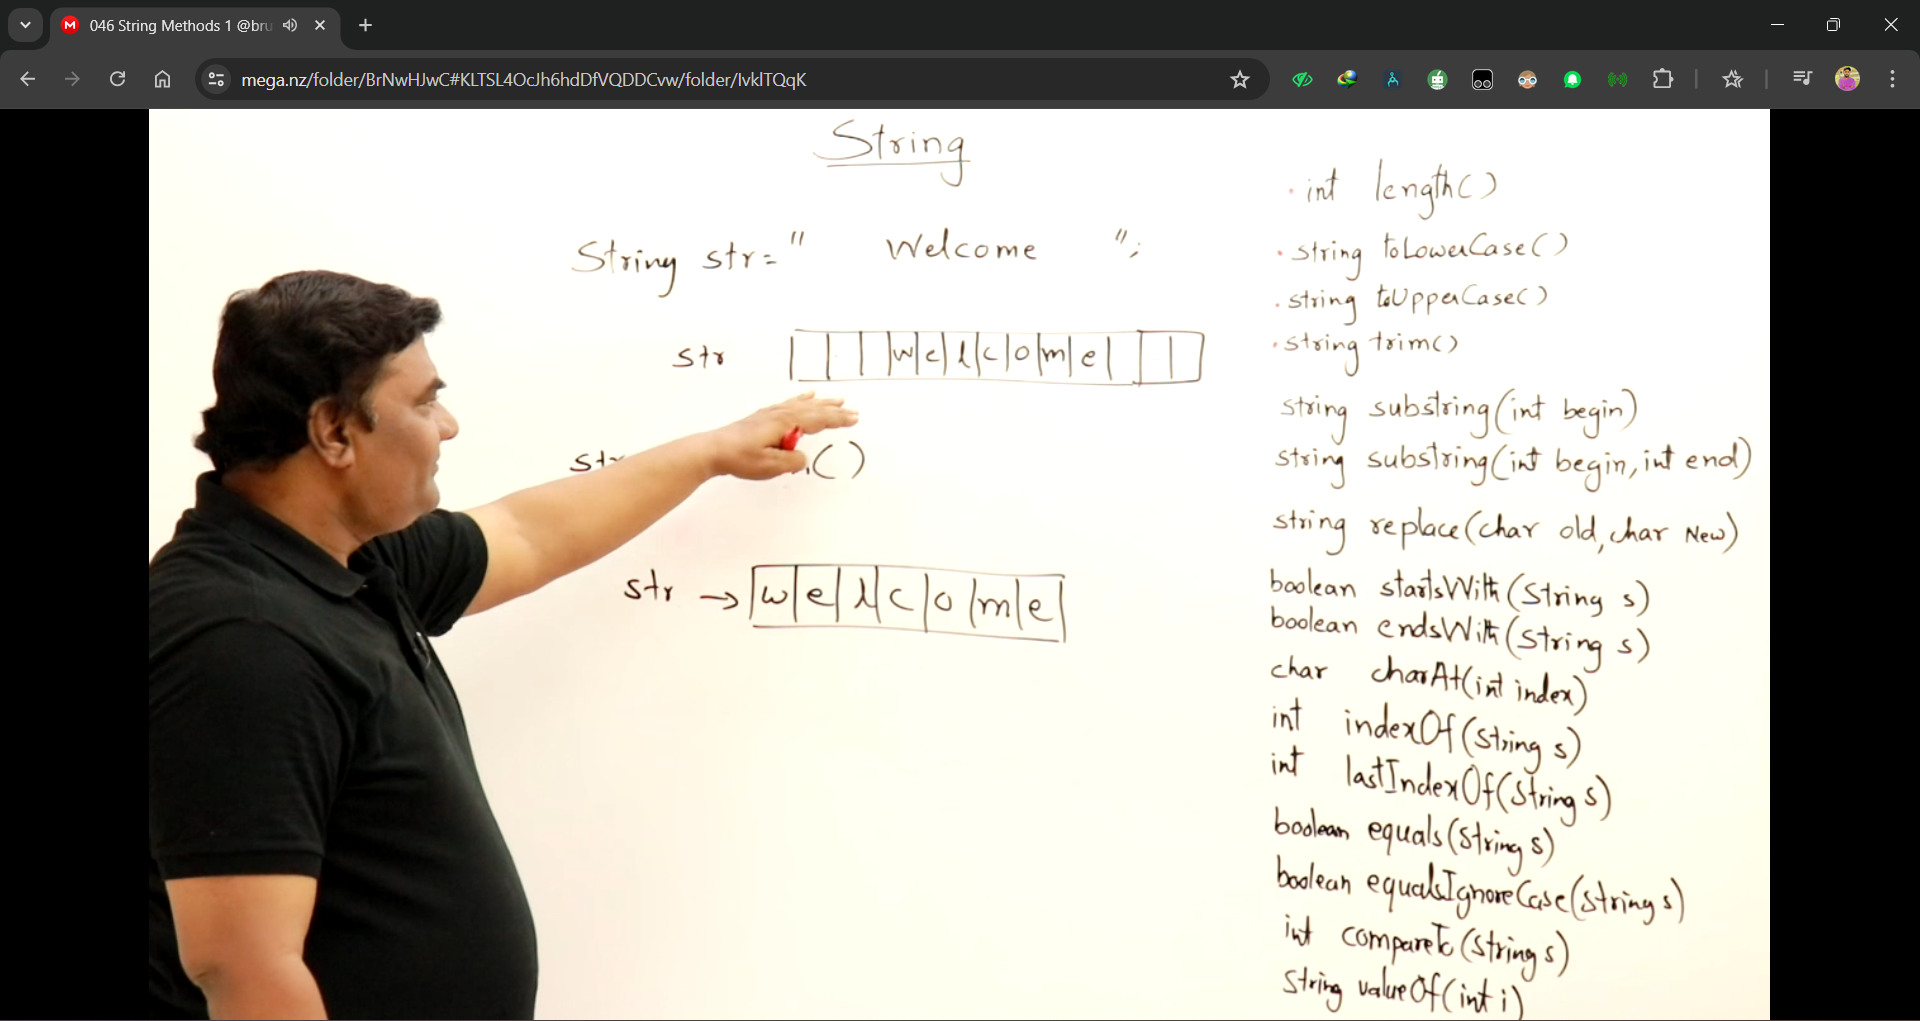 046 String Methods 1 @bru
mega.nz/folder/BrNwHJwC#KLTSL4OcJh6hdDfVQDDCvw/folder/IvklTQqK
String
String str = " Welcome ";
str w e l c o m e
str ()
str → w e l c o m e
· int length()
· string toLowerCase()
· string toUpperCase()
· string trim()
string substring(int begin)
string substring(int begin, int end)
string replace(char old, char New)
boolean startsWith(String s)
boolean endsWith(String s)
char charAt(int index)
int indexOf(String s)
int lastIndexOf(String s)
boolean equals(String s)
boolean equalsIgnoreCase(String s)
int compareTo(String s)
String valueOf(int i)